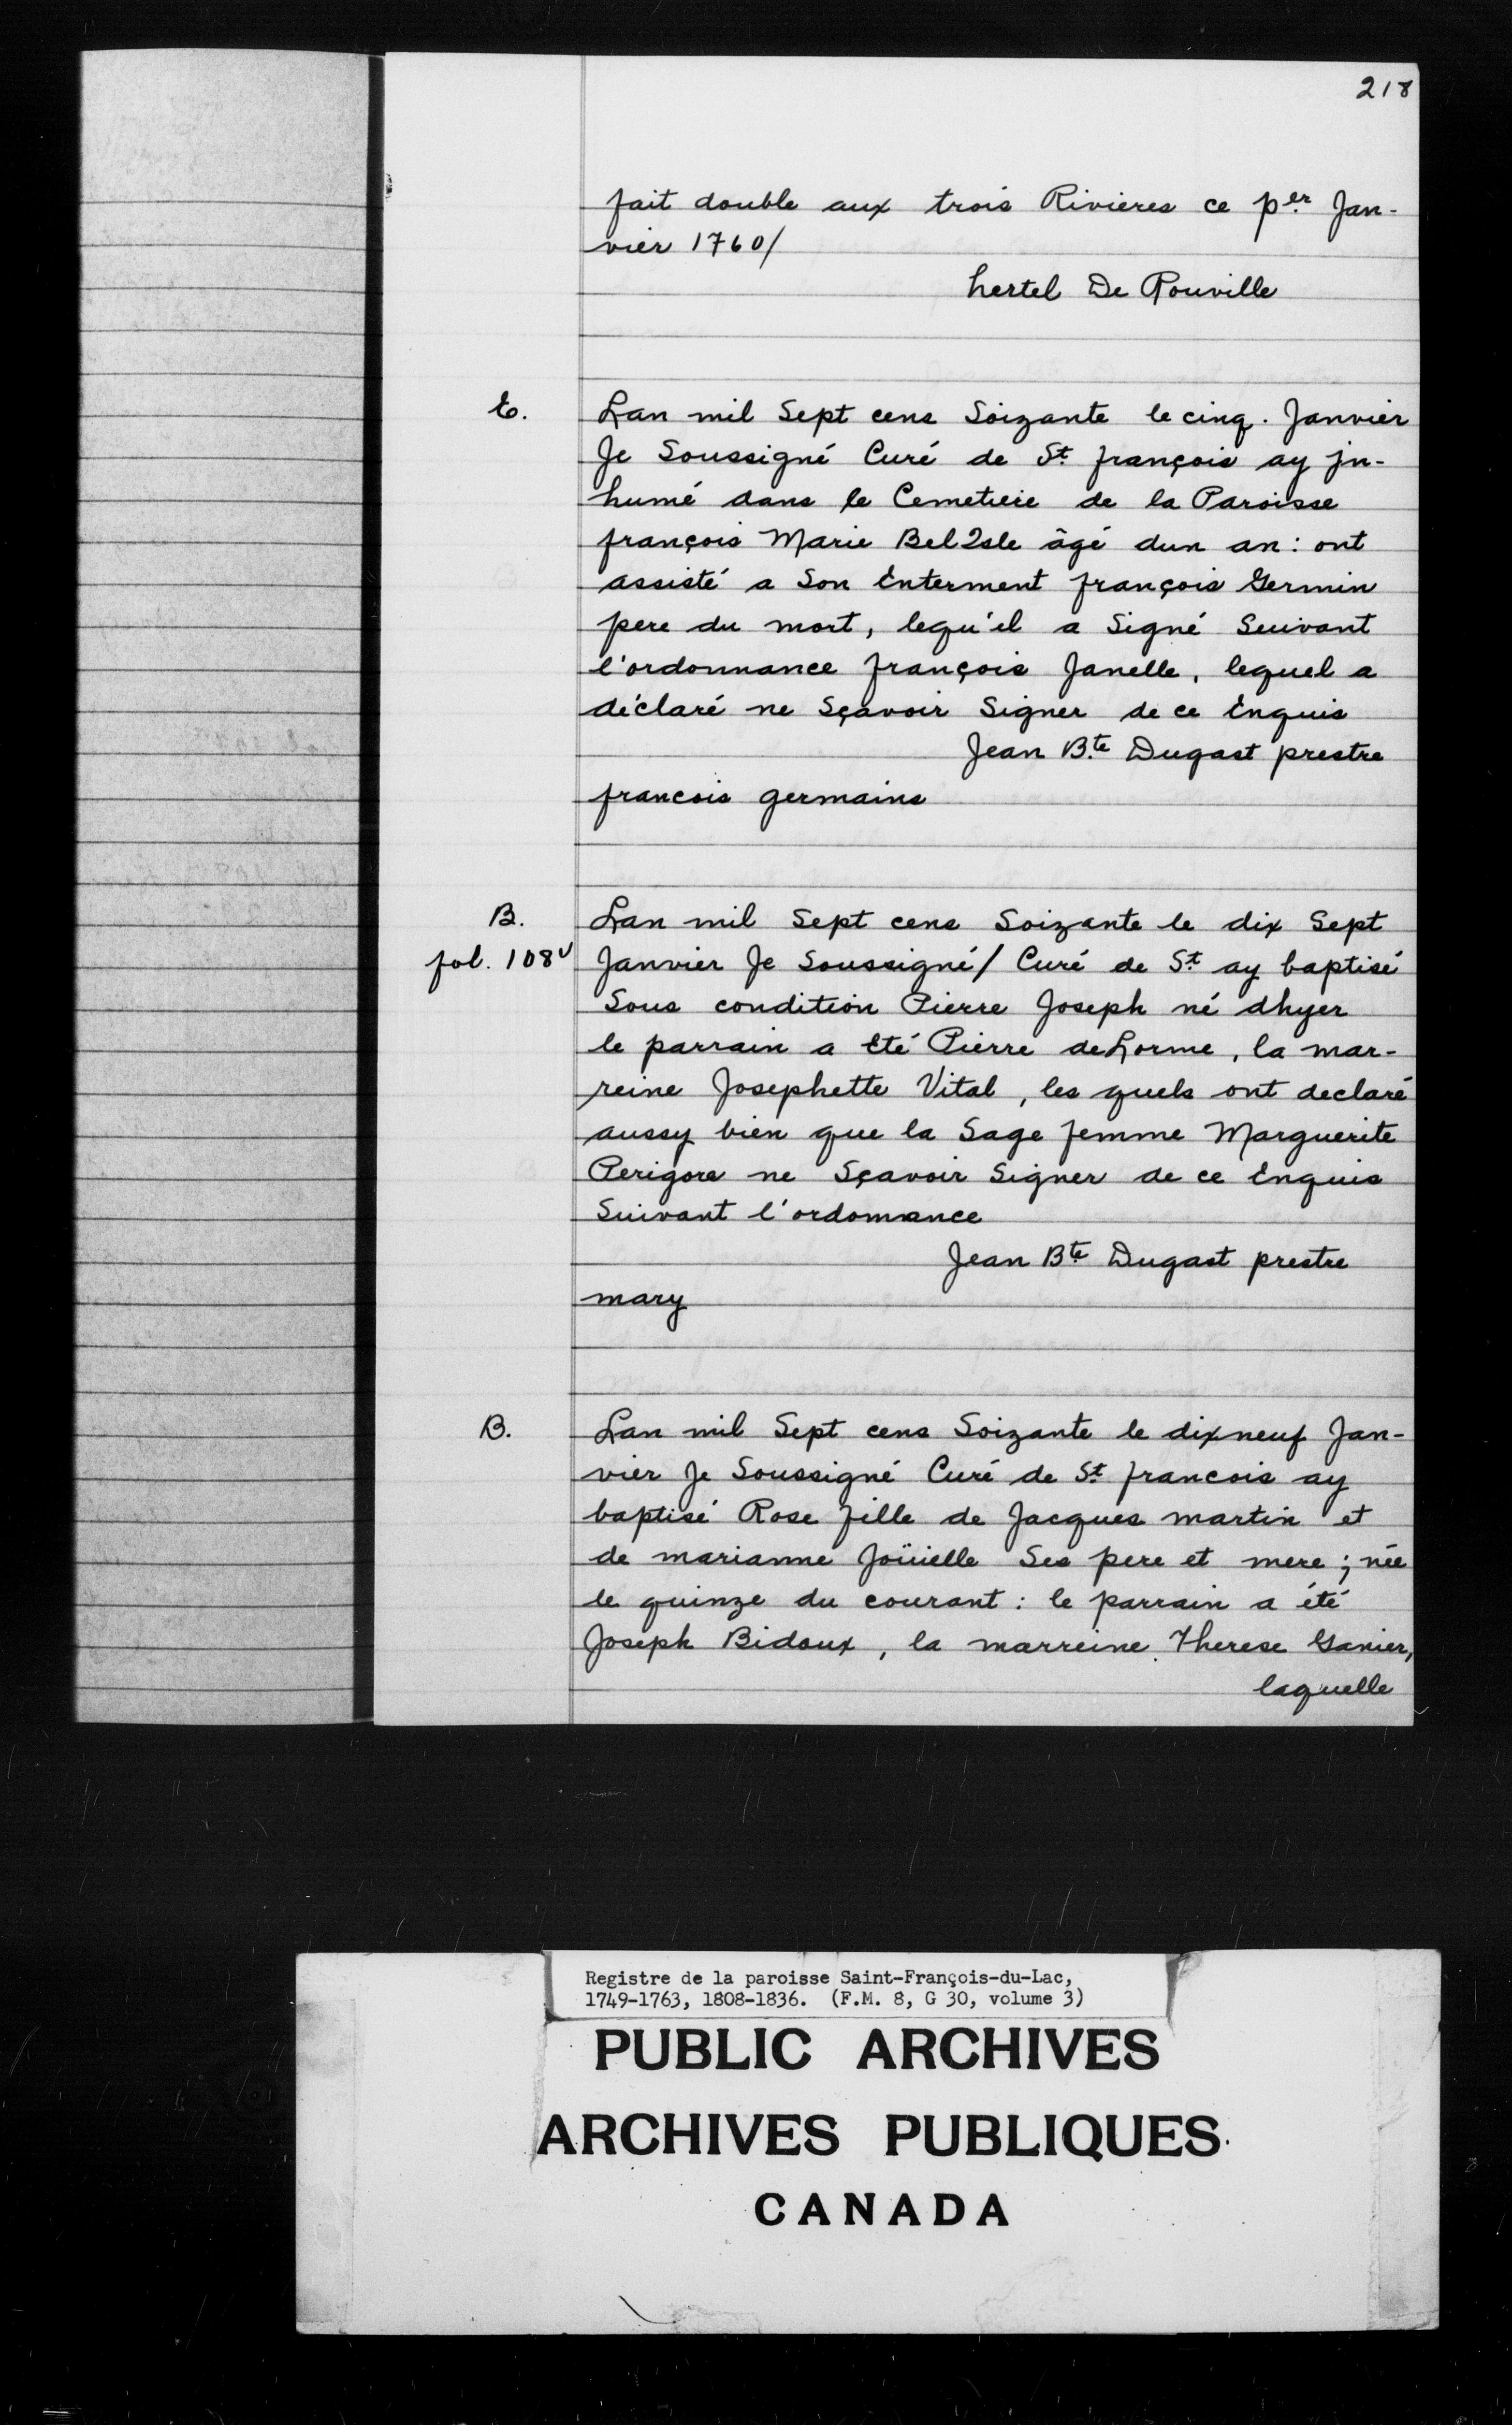 218
fait double aux trois Rivieres ce per Jan-
vier 1760/
hertel De Rouville
E.
Lan mil Sept cens Soizante le cinq. Janvier
Je Soussigné Curé de St françois ay jn-
humé dans le Cemetieie de la Paroisse
françois Marie Bel2sle âgé dun an : ont
assisté a Son Enterment françois Germin
pere du mort, lequ'il a Signé Suivant
l'ordonnance françois Janelle, lequel a
déclaré ne Sçavoir Signer de ce Enquis
Jean Bte Dugast prestre
francois germains
B.
Lan mil Sept cens Soizante le dix Sept
fol. 108v
Janvier Je Soussigné/ Curé de St ay baptisé
Sous condition Pierre Joseph né dhyer
le parrain a Eté Pierre deLorme, la mar-
reine Josephette Vital, les quels ont declaré
aussy bien que la Sage femme Marguerite
Perigore ne Sçavoir Signer de ce Enquis
Suivant l'ordomance
Jean Bte Dugast prestre
mary
B.
Lan mil Sept cens Soizante le dixneuf Jan-
vier Je Soussigné Curé de St francois ay
baptisé Rose fille de Jacques martin et
de marianne Joüielle Ses pere et mere ; née
le quinze du courant : le parrain a été
Joseph Bidoux, la marreine Therese Ganier,
laquelle
Registre de la paroisse Saint-François-du-Lac,
1749-1763, 1808-1836. (F.M. 8, G 30, volume 3)
PUBLIC ARCHIVES
ARCHIVES PUBLIQUES
CANADA